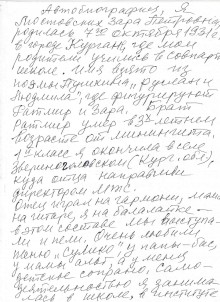 Автобиография. Я
Московских Зара Петровна
родилась 7го октября 1931г.
в городе Курган, где мои
родители учились в Совпарт
школе. Имя взято из
поэмы Пушкина „Руслан и
Людмила", где фигурируют
Ратмир и Зара. Брат
Ратмир умер в 3х летнем
возрасте от менингита.
1й класс я окончила в селе
Звериноголовском (Кург. обл),
куда отца направили
директором МТС.
Отец играл на гармони, мама
на гитаре, я на балалайке –
в этом составе мы выступа-
ли и пели. Очень любили
песню „Сулико" у папы – бас,
у мамы – альт, а у меня
детское сопрано. Само-
деятельностью я занима-
лась в школе, в институ